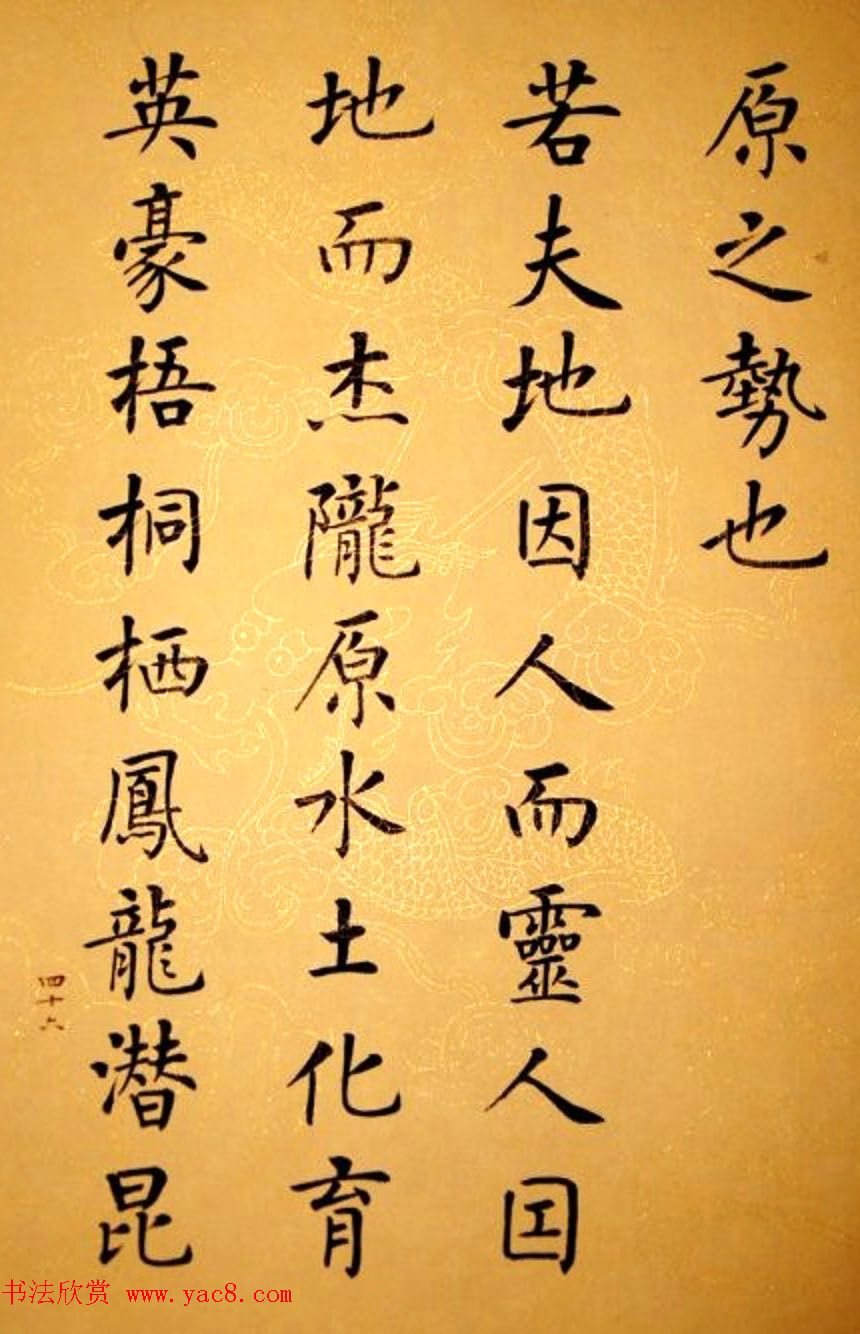 原之勢也
若夫地因人而靈人囙
地而杰隴原水土化育
英豪梧桐栖鳳龍潛昆
四十六
书法欣赏 www.yac8.com